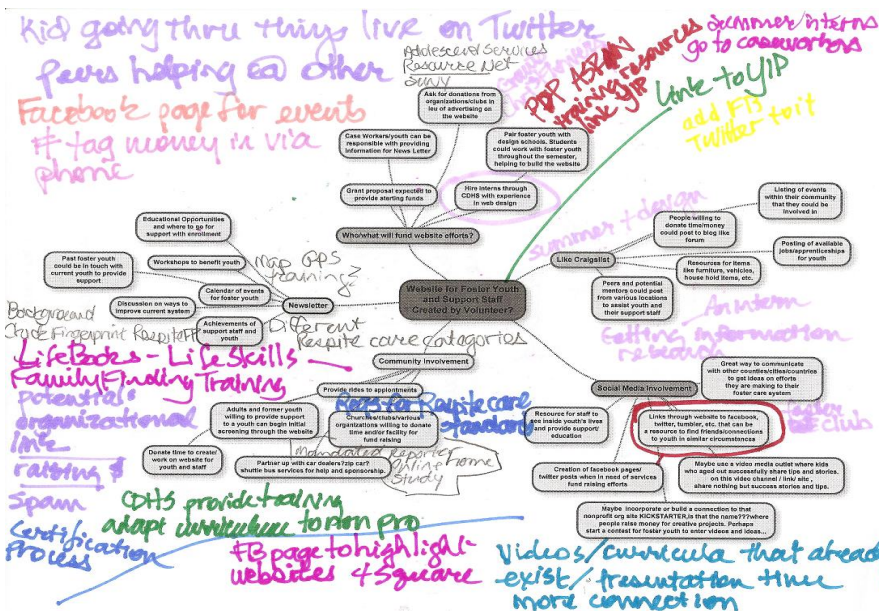 Kid going thru things live on Twitter
peers helping ea other
Facebook page for events
# tag money in via
phone
Adolescent Services
Resource Net
SUNY
PDP ASPAN
training resources
link YIP
Summer/interns
go to caseworkers
Link to YIP
add FB
Twitter to it
Ask for donations from
organizations/clubs in
leu of advertising on
the website
Case Workers/youth can be
responsible with providing
information for News Letter
Pair foster youth with
design schools. Students
could work with foster youth
throughout the semester,
helping to build the website
Grant proposal expected to
provide starting funds
Hire interns through
CDHS with experience
in web design
Who/what will fund website efforts?
summer + design
Educational Opportunities
and where to go for
support with enrollment
Past foster youth
could be in touch with
current youth to provide
support
Workshops to benefit youth
Calendar of events
for foster youth
Discussion on ways to
improve current system
Achievements of
support staff and
youth
Newsletter
Map GPS
training?
Website for Foster Youth
and Support Staff
Created by Volunteer?
Like Craigslist
People willing to
donate time/money
could post to blog like
forum
Listing of events
within their community
that they could be
involved in
Posting of available
jobs/apprenticeships
for youth
Resources for items
like furniture, vehicles,
house hold items, etc.
Peers and potential
mentors could post
from various locations
to assist youth and
their support staff
An intern
Getting information
research
Background
Check Fingerprint Respite
Different
Respite care categories
LifeBooks - Life Skills
Family Finding Training
potentials
organizational
link
raising $
spam
Certification
Process
Community Involvement
Provide rides to appointments
Adults and former youth
willing to provide support
to a youth can begin initial
screening through the website
Churches/clubs/various
organizations willing to donate
time and/or facility for
fund raising
Regs for Respite care
standard
Donate time to create/
work on website for
youth and staff
Partner up with car dealers?zip car?
shuttle bus services for help and sponsorship.
Mandated Reporter
online home
study
CDHS provide training
adapt curriculum to non pro
FB page to highlight
websites 4 Square
Social Media Involvement
Great way to communicate
with other counties/cities/countries
to get ideas on efforts
they are making to their
foster care system
Resource for staff to
see inside youth's lives
and provide support/
education
Links through website to facebook,
twitter, tumbler, etc. that can be
a resource to find friends/connections
to youth in similar circumstances
club
Creation of facebook pages/
twitter posts when in need of services
fund raising efforts
Maybe use a video media outlet where kids
who aged out successfully share tips and stories.
on this video channel / link/ site ,
share nothing but success stories and tips.
Maybe incorporate or build a connection to that
nonprofit org site KICKSTARTER,is that the name???where
people raise money for creative projects. Perhaps
start a contest for foster youth to enter videos and ideas...
Videos/curricula that already
exist/presentation time
more connection